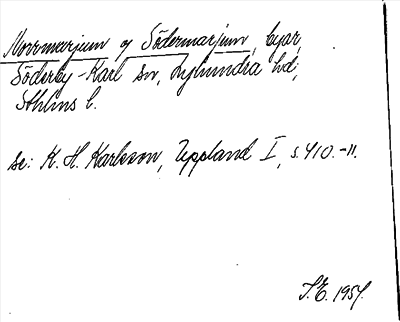 Norrmarjum o Södermarjum, byar,
Söderby-Karl sn, Lyhundra hd,
Sthlms l.
se: K. H. Karlsson, Uppland I, s. 410.-11.
S.E. 1954.